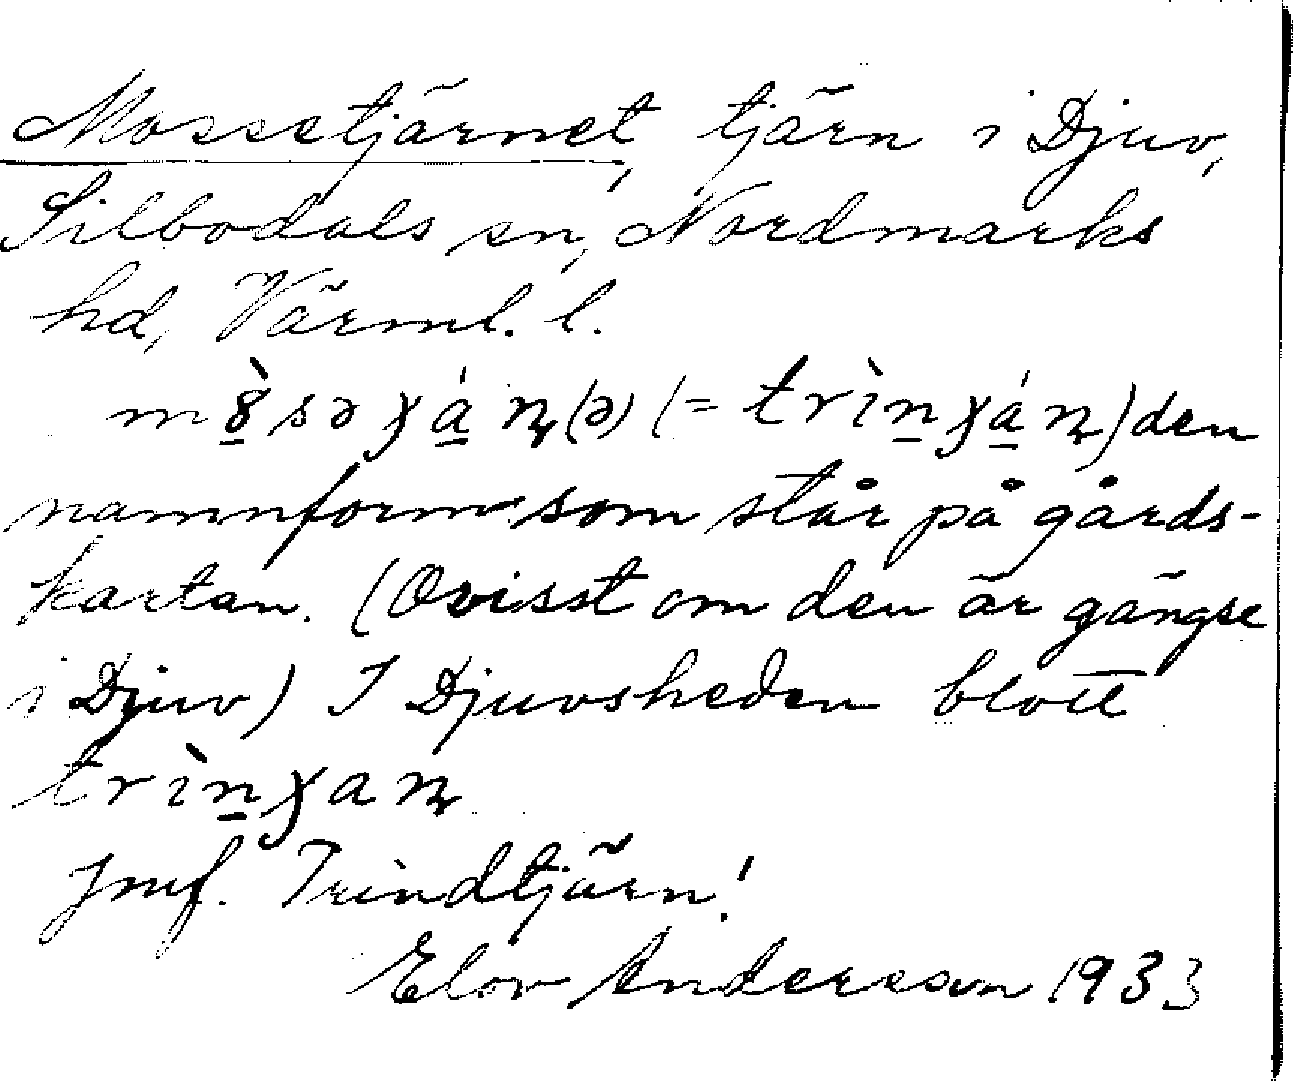 Mossetjärnet, tjärn i Djuv,
Silbodals sn, Nordmarks
hd, Värml. l.
den
namnform som står på gårds-
kartan. (Ovisst om den är gängse
i Djuv) I Djuvsheden blott
Jmf. Trindtjärn!
Elov Andersson 1933